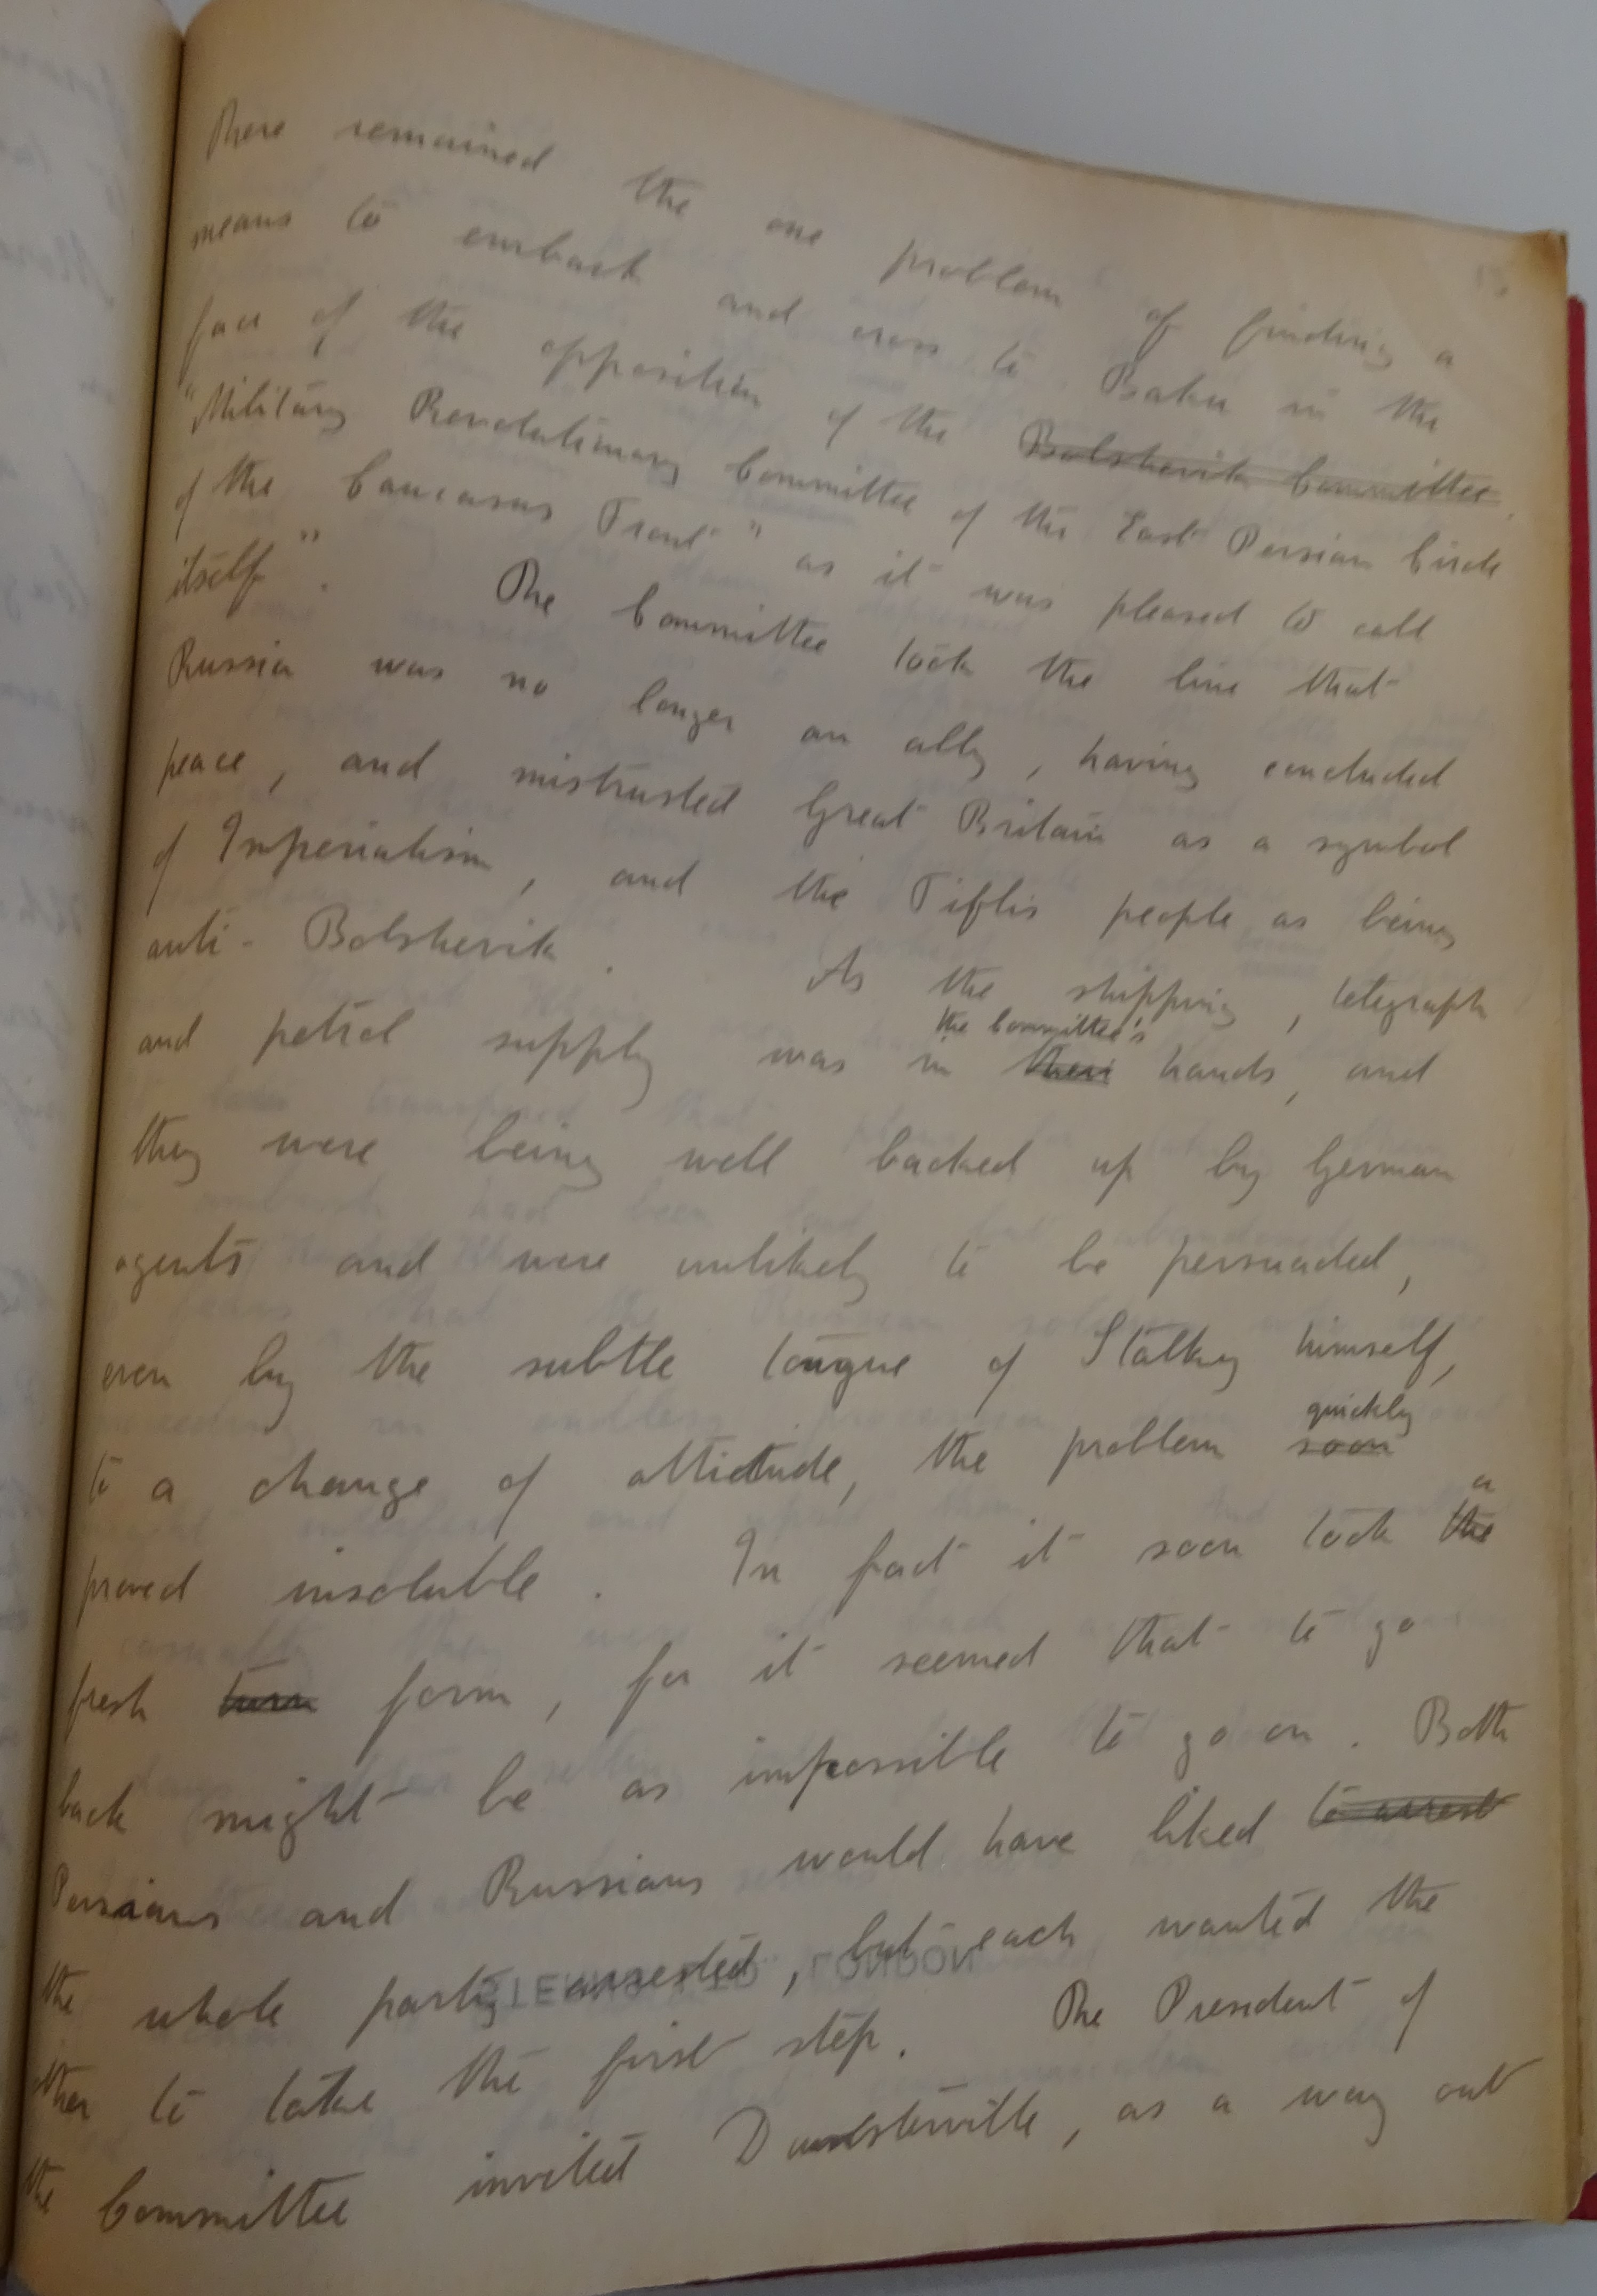 There remained the one problem of finding a
means to embark and cross to Baku in the
face of the opposition of the Bolshevik Committee
"Military Revolutionary Committee of the East Persian Circle
of the Caucasus Front" as it was pleased to call
itself". The Committee took the line that
Russia was no longer an ally, having concluded
peace, and mistrusted Great Britain as a symbol
of Imperialism, and the Tiflis people as being
anti-Bolshevik. As the shipping, telegraph
the Committee's
and petrol supply was in their hands, and
they were being well backed up by German
agents and were unlikely to be persuaded,
even by the subtle tongue of Stalky himself,
quickly
to a change of attitude, the problem soon
a
proved insoluble. In fact it soon took the
fresh turn form, for it seemed that to go
back might be as impossible to go on. Both
Persians and Russians would have liked to arrest
the whole party arrested, but each wanted the
other to take the first step. The President of
the Committee invited Dunsterville, as a way out